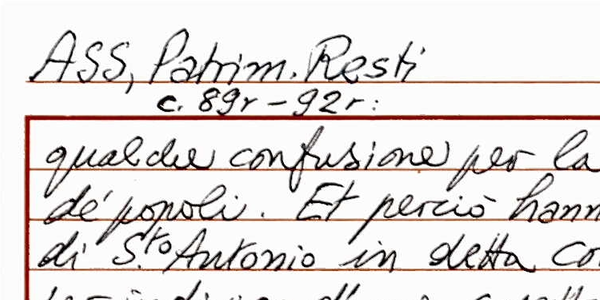 ASS, Patrim. Resti
c. 89r - 92r:
qualche confusione per la
dé popoli. Et perciò hann
di S.to Antonio in detta co